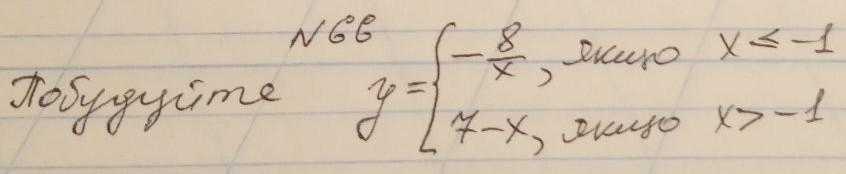 N66
Побудуйте y = { -8/x, якщо x ≤ -1
7-x, якщо x > -1